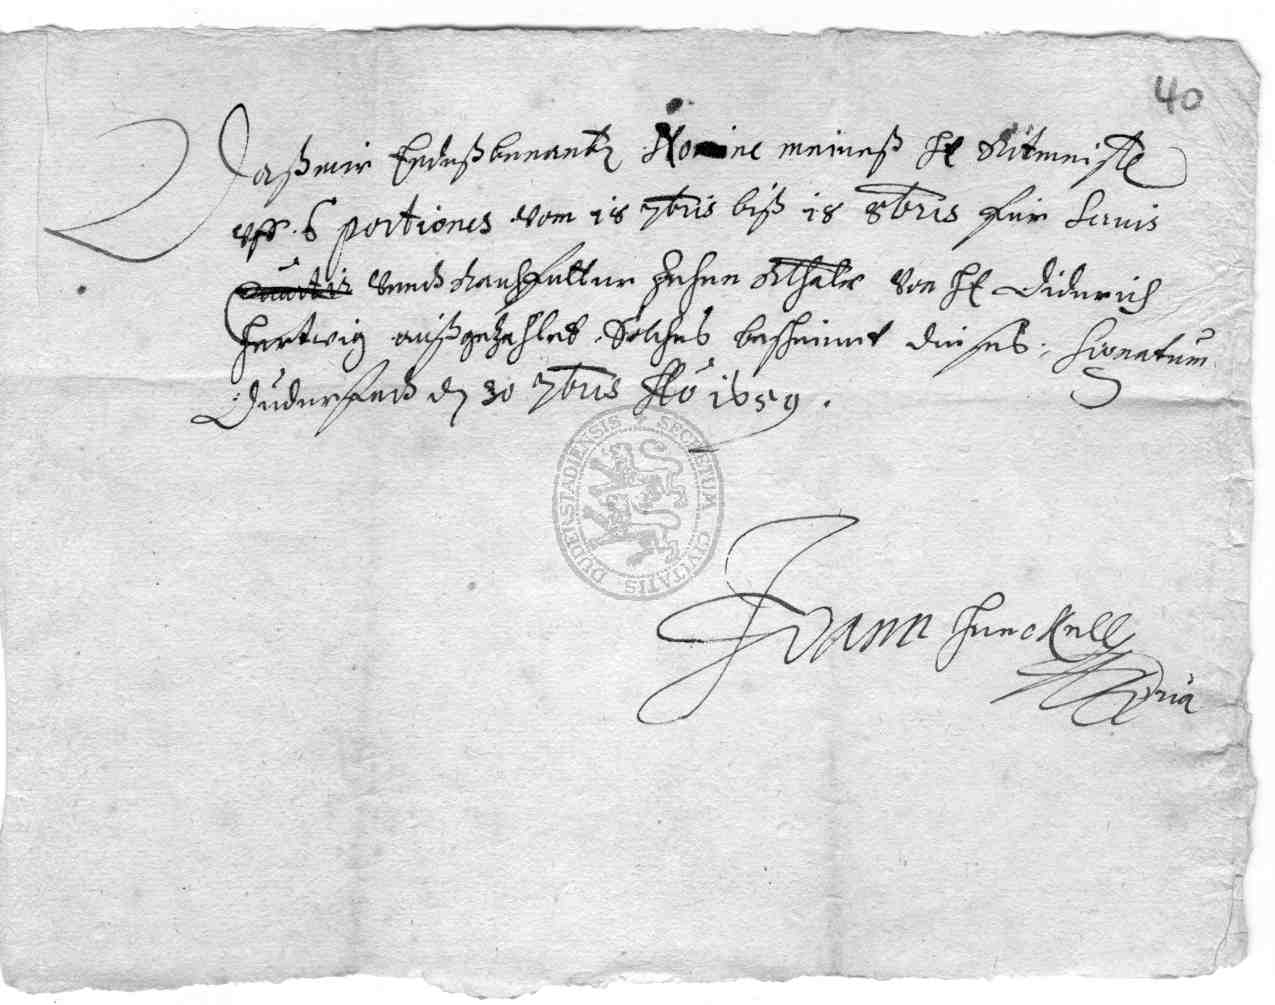 40
Daß mir Endeßbenantt Nomine meineß H Ritmeist
uff 6 portiones vom 18 7bris biß 18 8bris für servis
quartir unndt Rauhfutter Zehen Rthalr von H Diderich
Hertwig außgezahlet, Solches bescheinet dieses, Signatum
Duderstadt d 30 7bris Ao 1659.
SECRETUM CIVITATIS DUDENSTADIENSIS
Joann Henckell
mpria